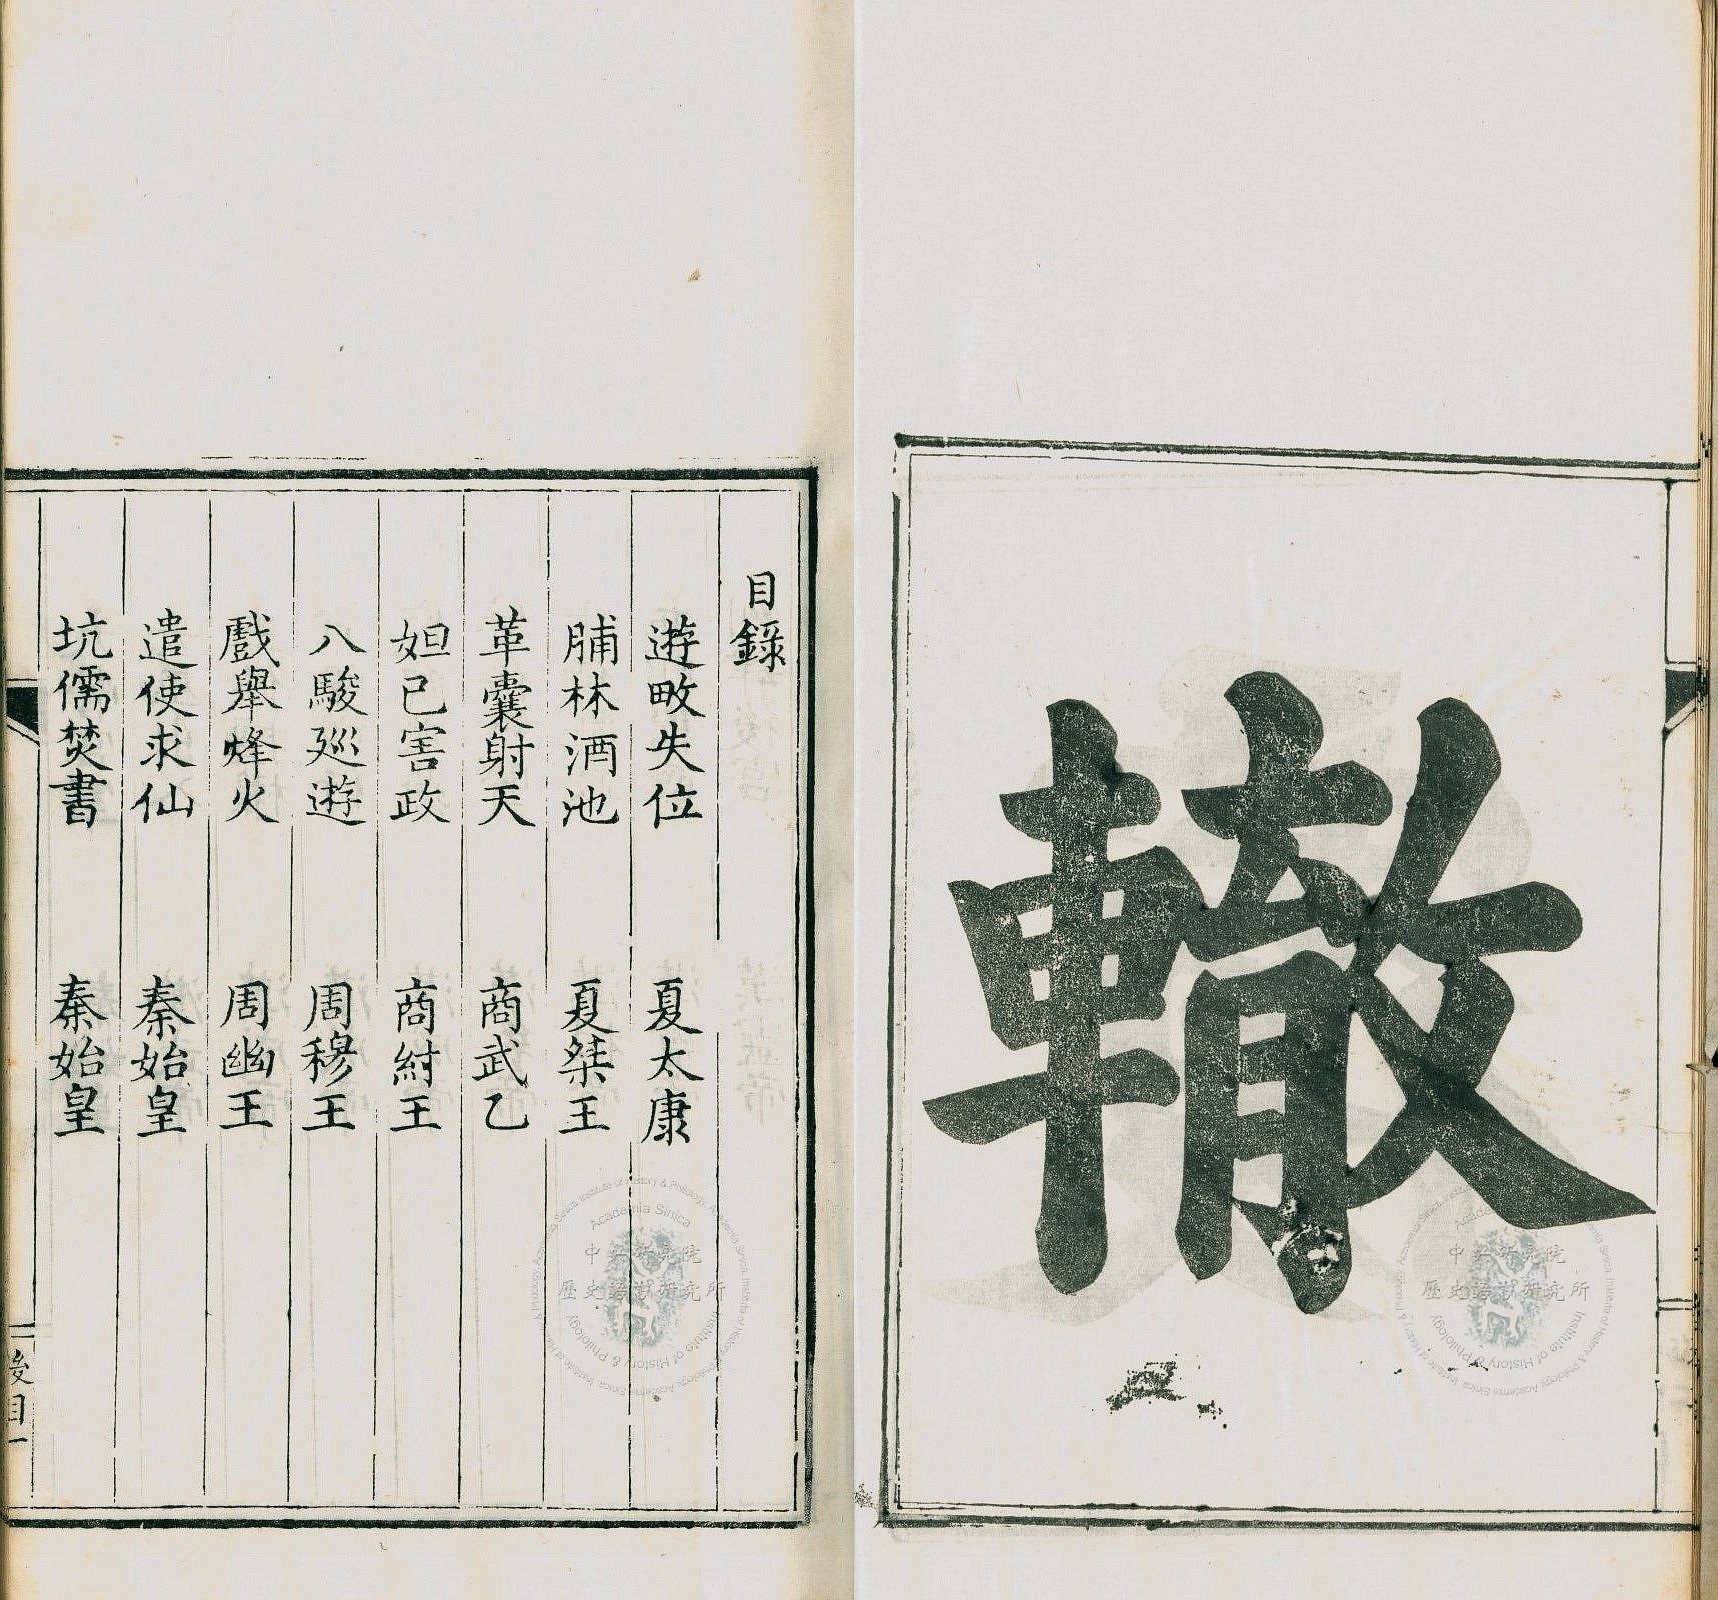 轍
目錄
遊畋失位 夏太康
脯林酒池 夏桀王
革囊射天 商武乙
妲己害政 商紂王
八駿廵遊 周穆王
戲舉烽火 周幽王
遣使求仙 秦始皇
坑儒焚書 秦始皇
後目一
Academia Sinica
中央研究院
歷史語言研究所
Institute of History & Philology
Academia Sinica
中央研究院
歷史語言研究所
Institute of History & Philology